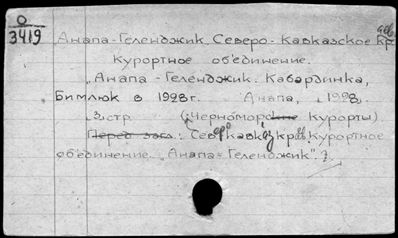 О
3419
Анапа-Геленджик Северо-Кавказское кр
Курортное об'единение.
„Анапа-Геленджик. Кабардинка,
Бимлюк в 1928 г. Анапа, 1928.
стр. (Черноморские Курорты).
Перед загл.: Сев. Кавказ. кр. Курортное
об'единение „Анапа=Геленджик".